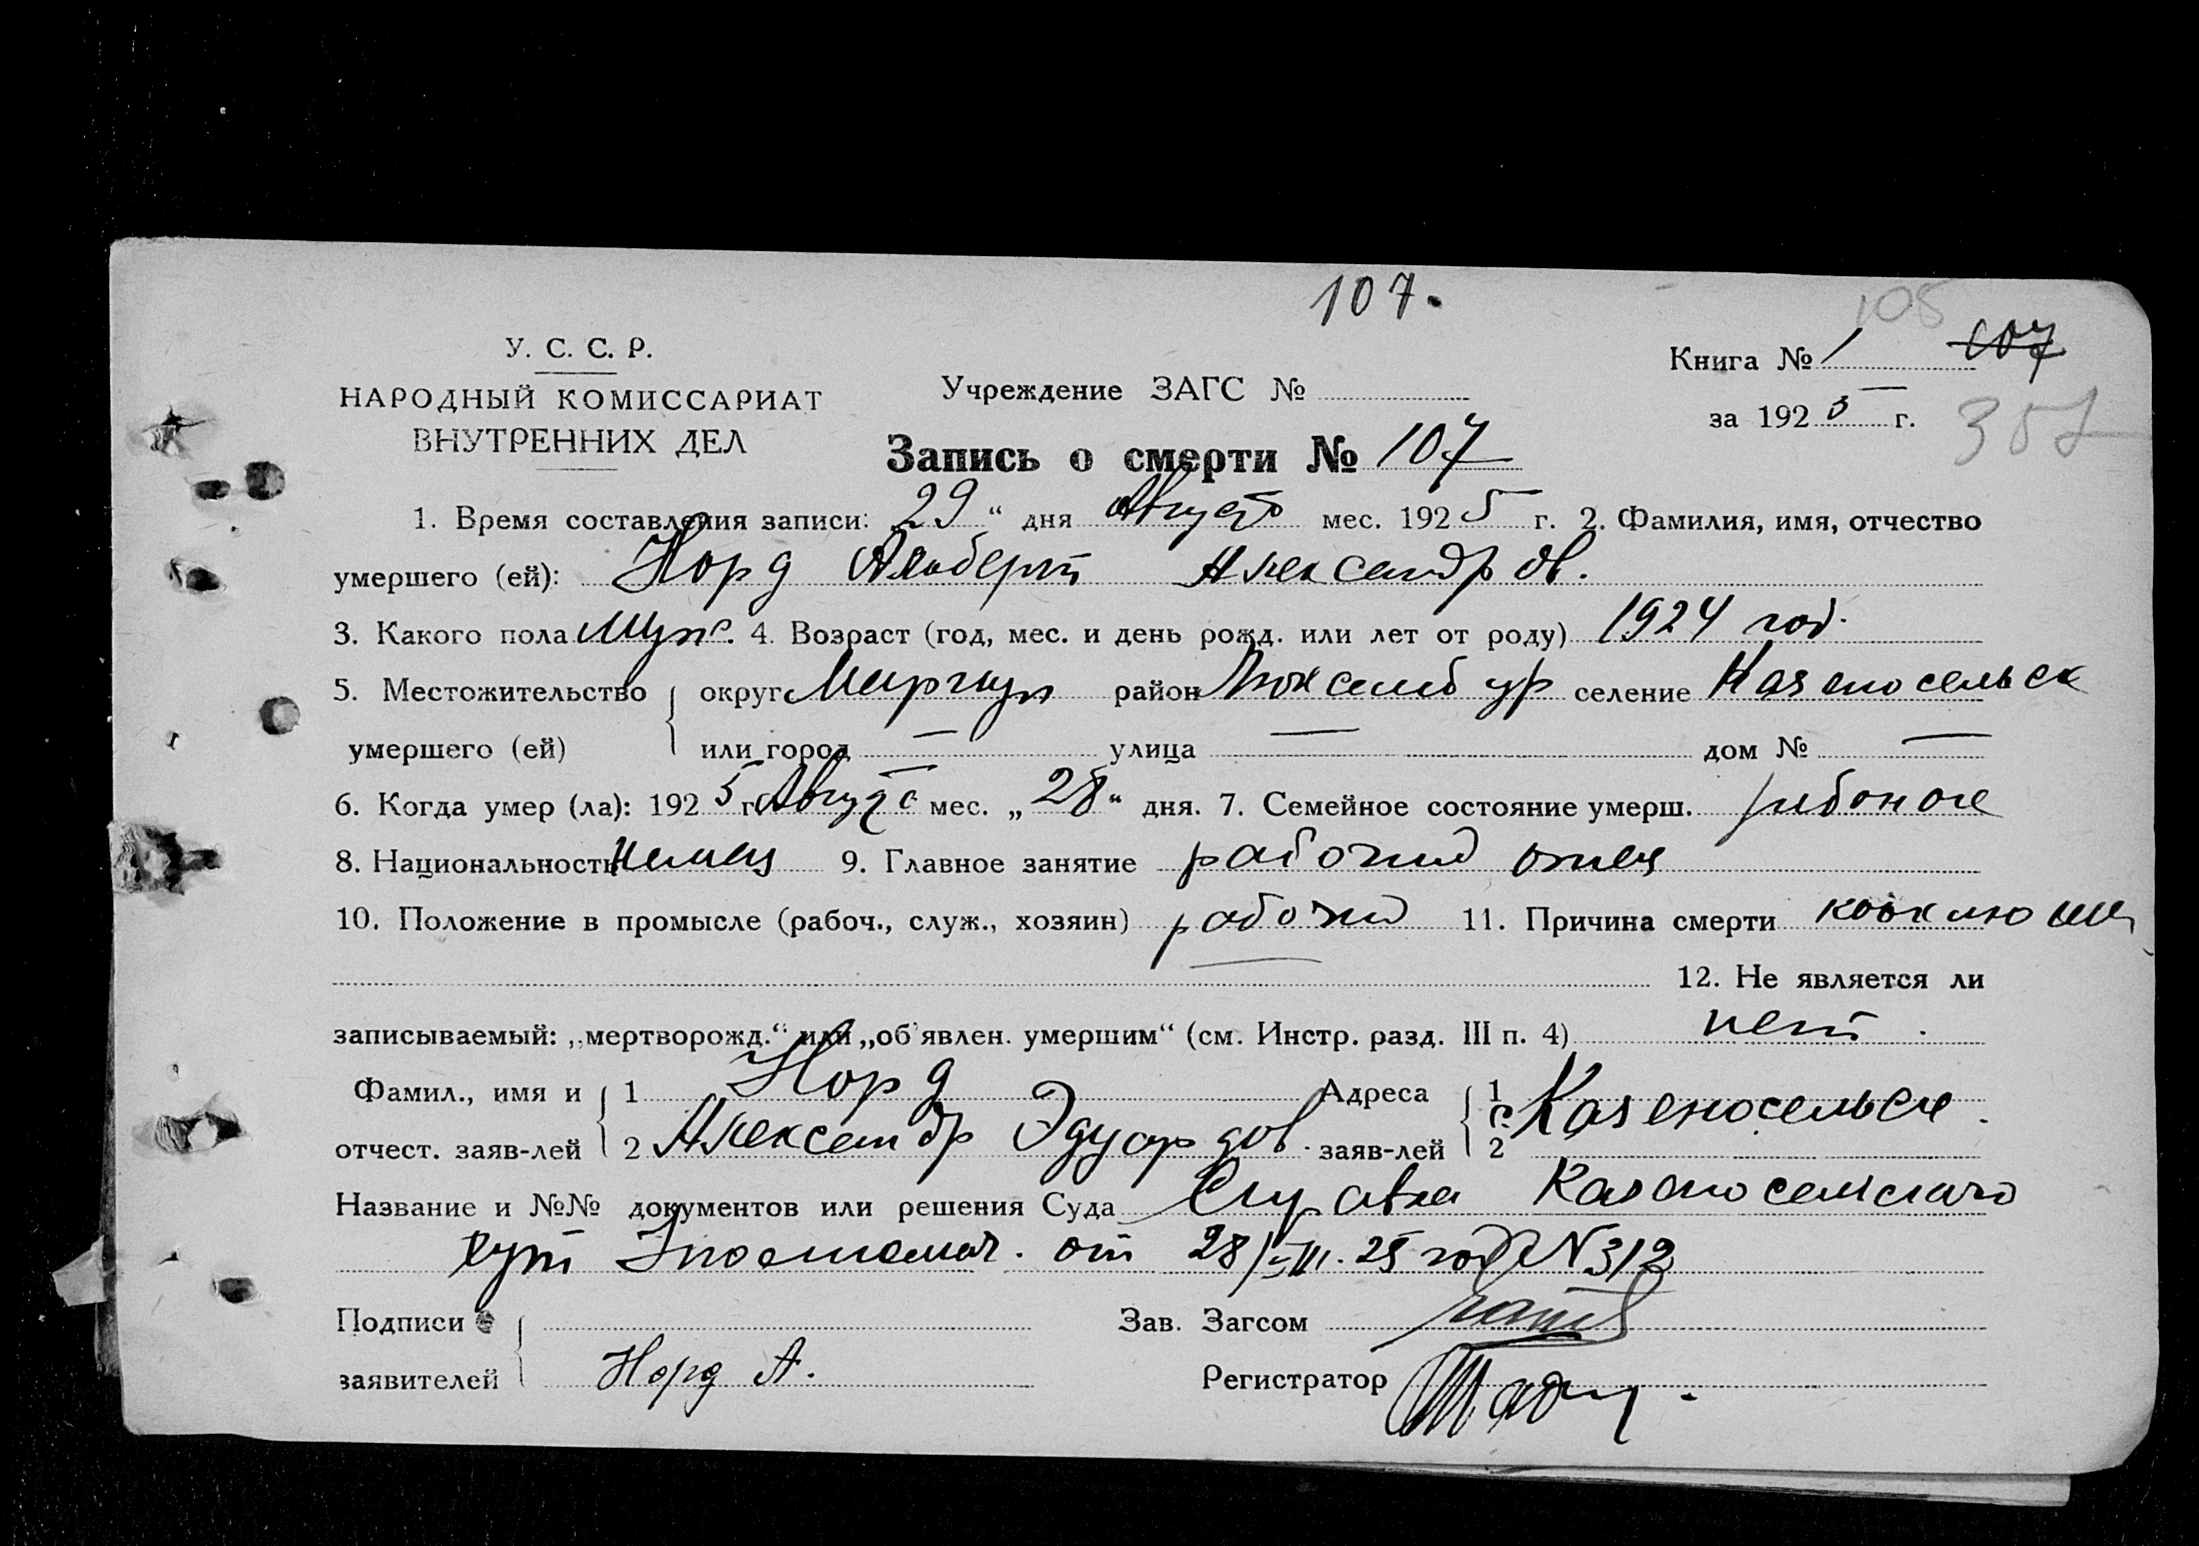 107.
105
У. С. С. Р.
Книга № 1 107
НАРОДНЫЙ КОМИССАРИАТ
Учреждение ЗАГС №
за 1925 г. 357
ВНУТРЕННИХ ДЕЛ
Запись о смерти № 107
1. Время составления записи: 29 “ дня Август мес. 1925 г. 2. Фамилия, имя, отчество
умершего (ей): Норд Альберт Александров.
3. Какого пола Муж. 4. Возраст (год, мес. и день рожд. или лет от роду) 1924 год.
5. Местожительство округ Мариуп район Люксембур селение Казеносельск
умершего (ей) или город — улица — дом № —
6. Когда умер (ла): 1925 г. Август мес. „28“ дня. 7. Семейное состояние умерш. рибонок
8. Национальность немец 9. Главное занятие рабочий отец
10. Положение в промысле (рабоч., служ., хозяин) рабочий 11. Причина смерти коклюш
12. Не является ли
записываемый: „мертворожд.“ или „об'явлен. умершим“ (см. Инстр. разд. III п. 4) нет.
Фамил., имя и 1 Норд Адреса 1
отчест. заяв-лей 2 Александр Эдуардов. заяв-лей 2 с. Казеносельск.
Название и №№ документов или решения Суда Справка Казеносельского
от 28/VIII.25 год N 312
Подписи Зав. Загсом
заявителей Норд А. Регистратор